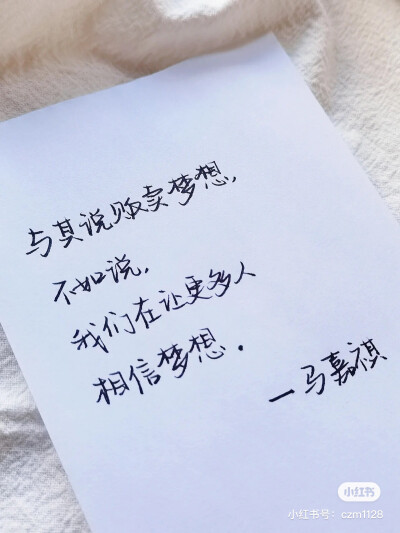 与其说贩卖梦想,
不如说,
我们在让更多人
相信梦想.
—马嘉祺
小红书
小红书号：czm1128